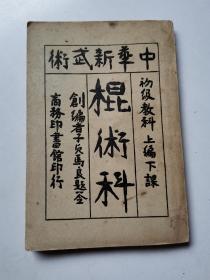 中華新武術
初級教科 上編下課
棍術科
創編者子貞馬良題簽
商務印書館印行